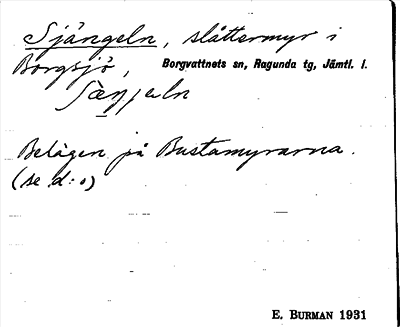 Sjängeln, slåttermyr i
Borgsjö, Borgvattnets sn, Ragunda tg, Jämtl. l.
Belägen på Bustamyrarna.
(se d:o)
E. BURMAN 1931